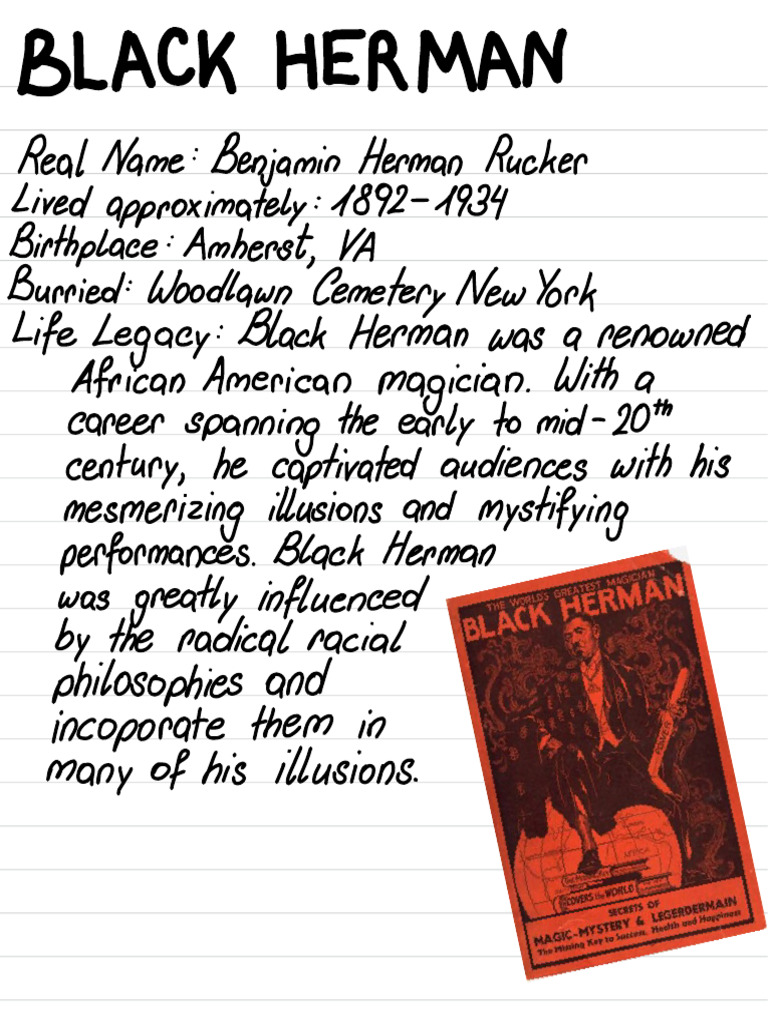 BLACK HERMAN
Real Name: Benjamin Herman Rucker
Lived approximately: 1892-1934
Birthplace: Amherst, VA
Burried: Woodlawn Cemetery New York
Life Legacy: Black Herman was a renowned
African American magician. With a
career spanning the early to mid-20th
century, he captivated audiences with his
mesmerizing illusions and mystifying
performances. Black Herman
was greatly influenced
by the radical racial
philosophies and
incoporate them in
many of his illusions.
THE WORLD'S GREATEST MAGICIAN
BLACK HERMAN
AFRICA
COVERS the WORLD
SECRETS OF
MAGIC-MYSTERY & LEGERDERMAIN
The Missing Key to Success, Health and Happiness